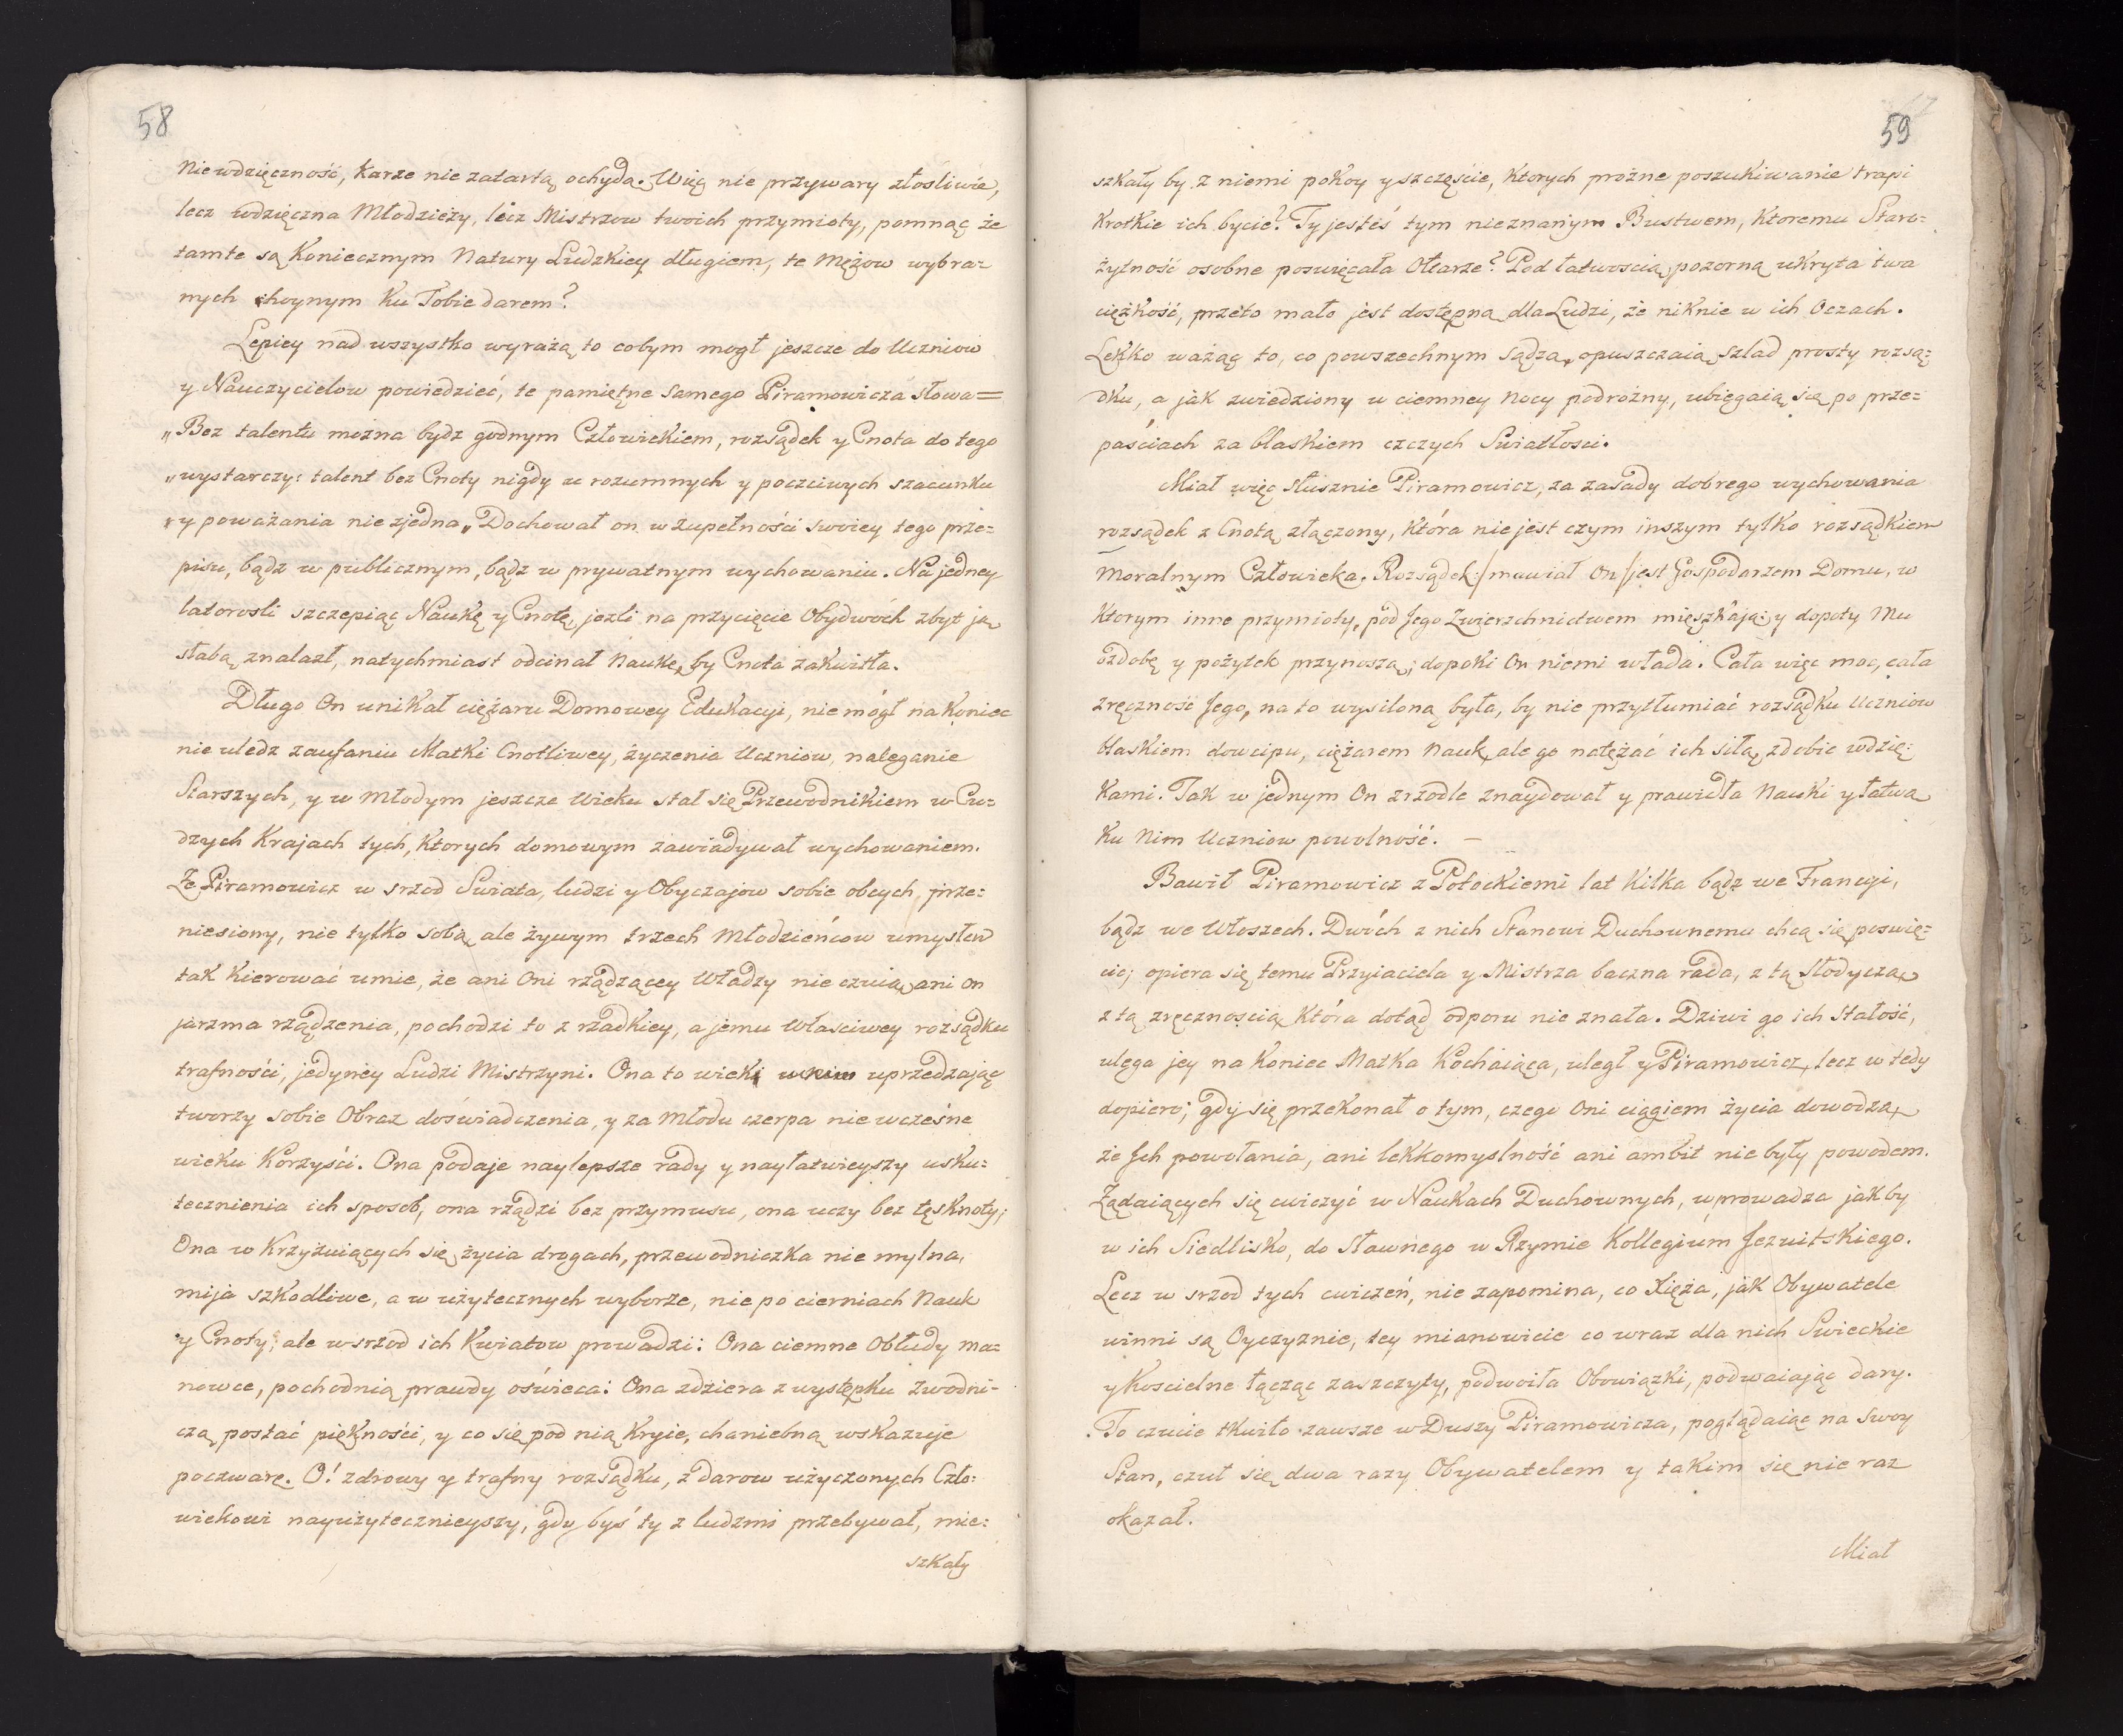 58
Niewdzięczność, karze niezatartą ochydą. Więc nie przywary złośliwie,
lecz wdzięczna Młodzieży, lecz Mistrzow twoich przymioty, pomnąc że
tamte są Koniecznym Natury Ludzkiey długiem, te Mężow wybra=
nych hoynym ku Tobie darem?
Lepiey nad wszystko wyrażą to cobym mogł jeszcze do Uczniow
y Nauczycielow powiedzieć, te pamiętne samego Piramowicza słowa=
„Bez talentu mozna bydz godnym Człowiekiem, rozsądek y Cnota do tego
„wystarczy: talent bez Cnoty nigdy u rozumnych y poczciwych szacunku
„y poważania nie zjedna„ Dochował on w zupełności swoiey tego prze=
pisu, bądz w publicznym, bądz w prywatnym wychowaniu. Na jedney
latorosli szczepiąc Naukę y Cnotę, jezli na przycięcie Obydwóch zbyt ją
słabą znalazł, natychmiast odcinał Naukę, by Cnota zakwitła.
Długo On unikał ciężaru Domowey Edukacyi, nie mógł nakoniec
nie uledz zaufaniu Matki Cnotliwey, życzenia Uczniow, naleganie
Starszych, y w młodym jeszcze wieku stał się Przewodnikiem w Cu=
dzych Krajach tych, Ktorych domowym zawiadywał wychowaniem.
Że Piramowicz w srzod Swiata, ludzi y Obyczajow sobie obcych prze=
niesiony, nie tylko sobą, ale żywym trzech Młodzieńcow umysłem
tak Kierować umie, że ani Oni rządzącey Władzy nie czuią, ani On
jarzma rządzenia, pochodzi to z rzadkiey, a jemu Własciwey rozsądku
trafności, jedyney Ludzi Mistrzyni. Ona to wieki uprzedzając
tworzy sobie Obraz doświadczenia, y za młodu czerpa nie wcześne
wieku Korzyści. Ona podaje naylepsze rady y nayłatwieyszy usku=
tecznienia ich sposob, ona rządzi bez przymusu, ona uczy bez tęsknoty;
Ona w Krzyżuiących się życia drogach, przewodniczka nie mylna,
mija szkodliwe, a w użytecznych wyborze, nie po cierniach Nauk
y Cnoty, ale wsrzod ich Kwiatow prowadzi: Ona ciemne Obłudy ma=
nowce, pochodnią prawdy oświeca: Ona zdziera z występku zwodni=
czą postać piękności, y co się pod nią Kryie, chaniebną wskazuje
poczwarę. O! zdrowy y trafny rozsądku, z darow użyczonych Czło=
wiekowi nayużytecznieyszy, gdy byś ty z ludzmi przebywał, mie=
szkały
59
szkały by z niemi pokoy y szczęście, Ktorych prożne poszukiwanie trapi
Krotkie ich bycie? Ty jesteś tym nieznanym Bustwem, Ktoremu Staro=
żytność osobne poswięcała Ołtarze? Pod łatwoscią pozorną ukryta twa
ciężkość, przeto mało jest dostępną dla Ludzi, że niknie w ich Oczach.
Lekko ważąc to, co powszechnym sądzą, opuszczaią szlad prosty rozsą=
dku, a jak zwiedziony w ciemney Nocy podrożny, ubiegaią się po prze=
paściach za blaskiem czczych Swiatłosci.
Miał więc słusznie Piramowicz, za zasady dobrego wychowania
rozsądek z Cnotą złączony, która nie jest czym inszym tylko rozsądkiem
Moralnym Człowieka. Rozsądek /mawiał On/ jest Gospodarzem Domu, w
Ktorym inne przymioty, pod Jego Zwierzchnictwem mieszkają: y dopoty Mu
ozdobę y pożytek przynoszą, dopoki On niemi włada. Cała więc moc, cała
zręczność Jego, na to wysiloną była, by nie przytłumiać rozsądku Uczniow
blaskiem dowcipu, ciężarem Nauk, ale go natężać ich siłą, zdobic wdzię=
Kami. Tak w jednym On zrzodle znaydował y prawidła Nauki y łatwą
Ku Nim Uczniow powolność. —
Bawił Piramowicz z Potockiemi lat Kilka bądz we Francyi,
bądz we Włoszech. Dwóch z nich Stanowi Duchownemu chcą się poswię=
cic; opiera się temu Przyiaciela y Mistrza baczna rada, z tą słodyczą,
z tą zręcznoscią Która dotąd odporu nie znała. Dziwi go ich Stałość,
ulega jey na Koniec Matka Kochaiąca, uległ y Piramowicz, lecz w tedy
dopiero; gdy się przekonał o tym, czego Oni ciągiem życia dowodzą,
że Jch powołania, ani lekkomyslność ani ambit nie były powodem.
Żądaiących się cwiczyć w Naukach Duchownych, wprowadza jakby
w ich Siedlisko, do Sławnego w Rzymie Kollegium Jezuitskiego.
Lecz w srzod tych cwiczeń, nie zapomina, co Xięża, jak Obywatele
winni są Oyczyznie, tey mianowicie co wraz dla nich Swieckie
y Koscielne łącząc zaszczyty, podwoiła Obowiązki, podwaiając dary.
To czucie tkwiło zawsze w Duszy Piramowicza, poglądaiąc na swoy
Stan, czuł się dwa razy Obywatelem y takim się nie raz
okazał.
Miał